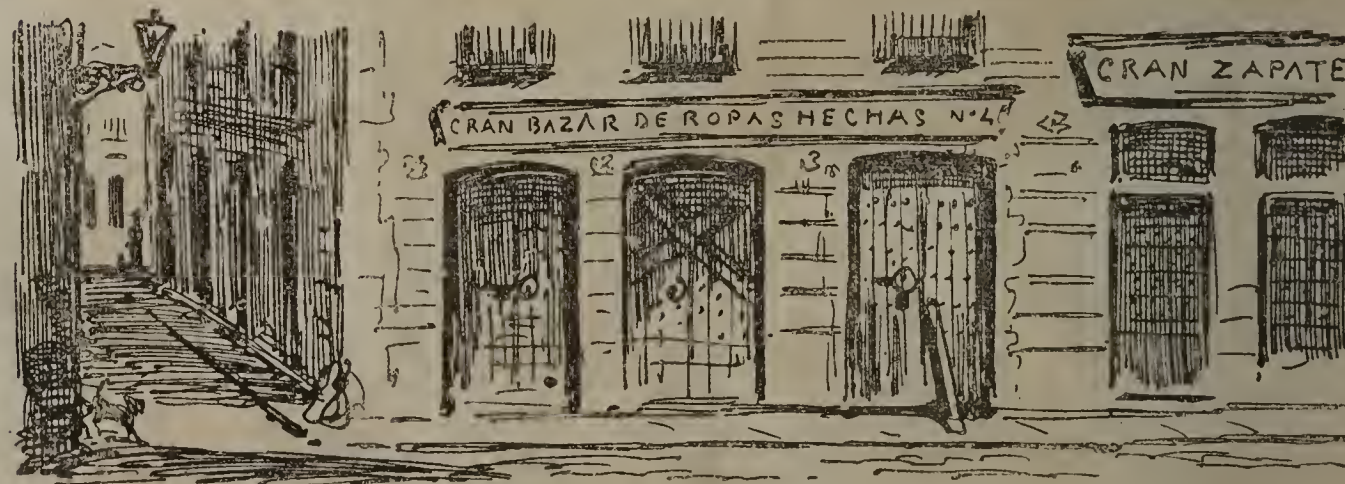 GRAN BAZAR DE ROPAS HECHAS Nº 4
GRAN ZAPATE